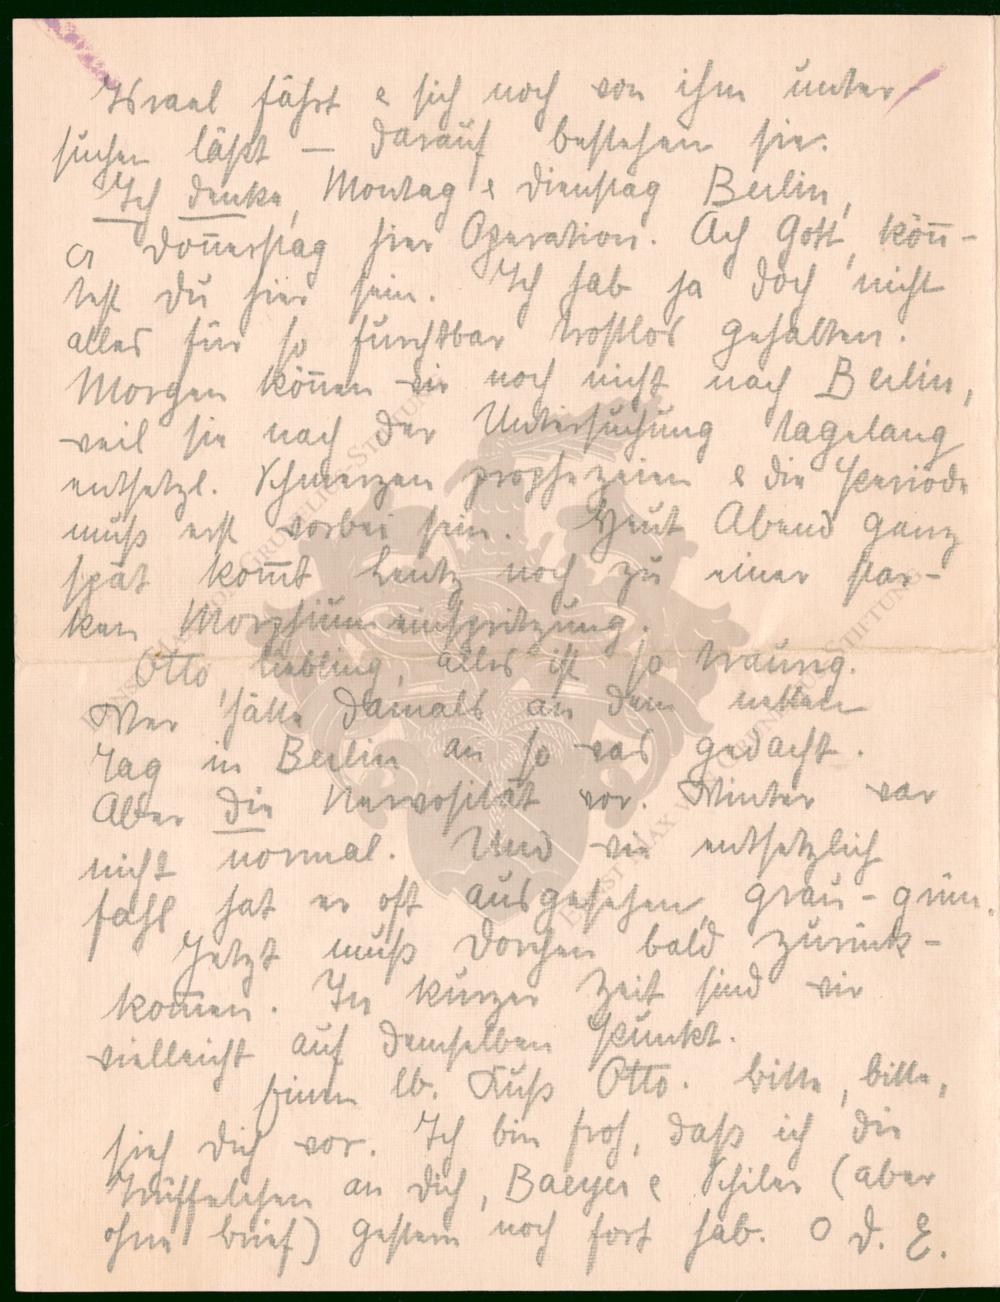 Israel fährt & sich noch von ihm unter-
suchen läßt – darauf bestehen sie.
Ich denke, Montag & Dienstag Berlin,
a Donnerstag hier Operation. Ach Gott, könn-
test Du hier sein. Ich hab ja doch nicht
alles für so furchtbar trostlos gehalten.
Morgen können wir noch nicht nach Berlin,
weil sie nach der Untersuchung tagelang
entsetzl. Schmerzen prophezeien & die Periode
muß erst vorbei sein. Heut Abend ganz
spät kommt Lentz noch zu einer star-
ken Morphiumeinspritzung.
Otto, liebling, alles ist so traurig.
Wer hätte damals an dem netten
Tag in Berlin an so was gedacht.
Aber die Nervosität vor. Winter war
nicht normal. Und wie entsetzlich
fahl hat er oft ausgesehen, grau-grün.
Jetzt muß Dorchen bald zurück-
kommen. In kurzer Zeit sind wir
vielleicht auf demselben Punkt.
Einen lb. Kuß Otto. Bitte, bitte,
sieh Dich vor. Ich bin froh, daß ich die
Trüffelchen an Dich, Baeyer & Schiler (aber
ohne Brief) gestern noch fort hab. O d. E.
ERNST MAX VON GRUNELIUS-STIFTUNG
ERNST MAX VON GRUNELIUS-STIFTUNG